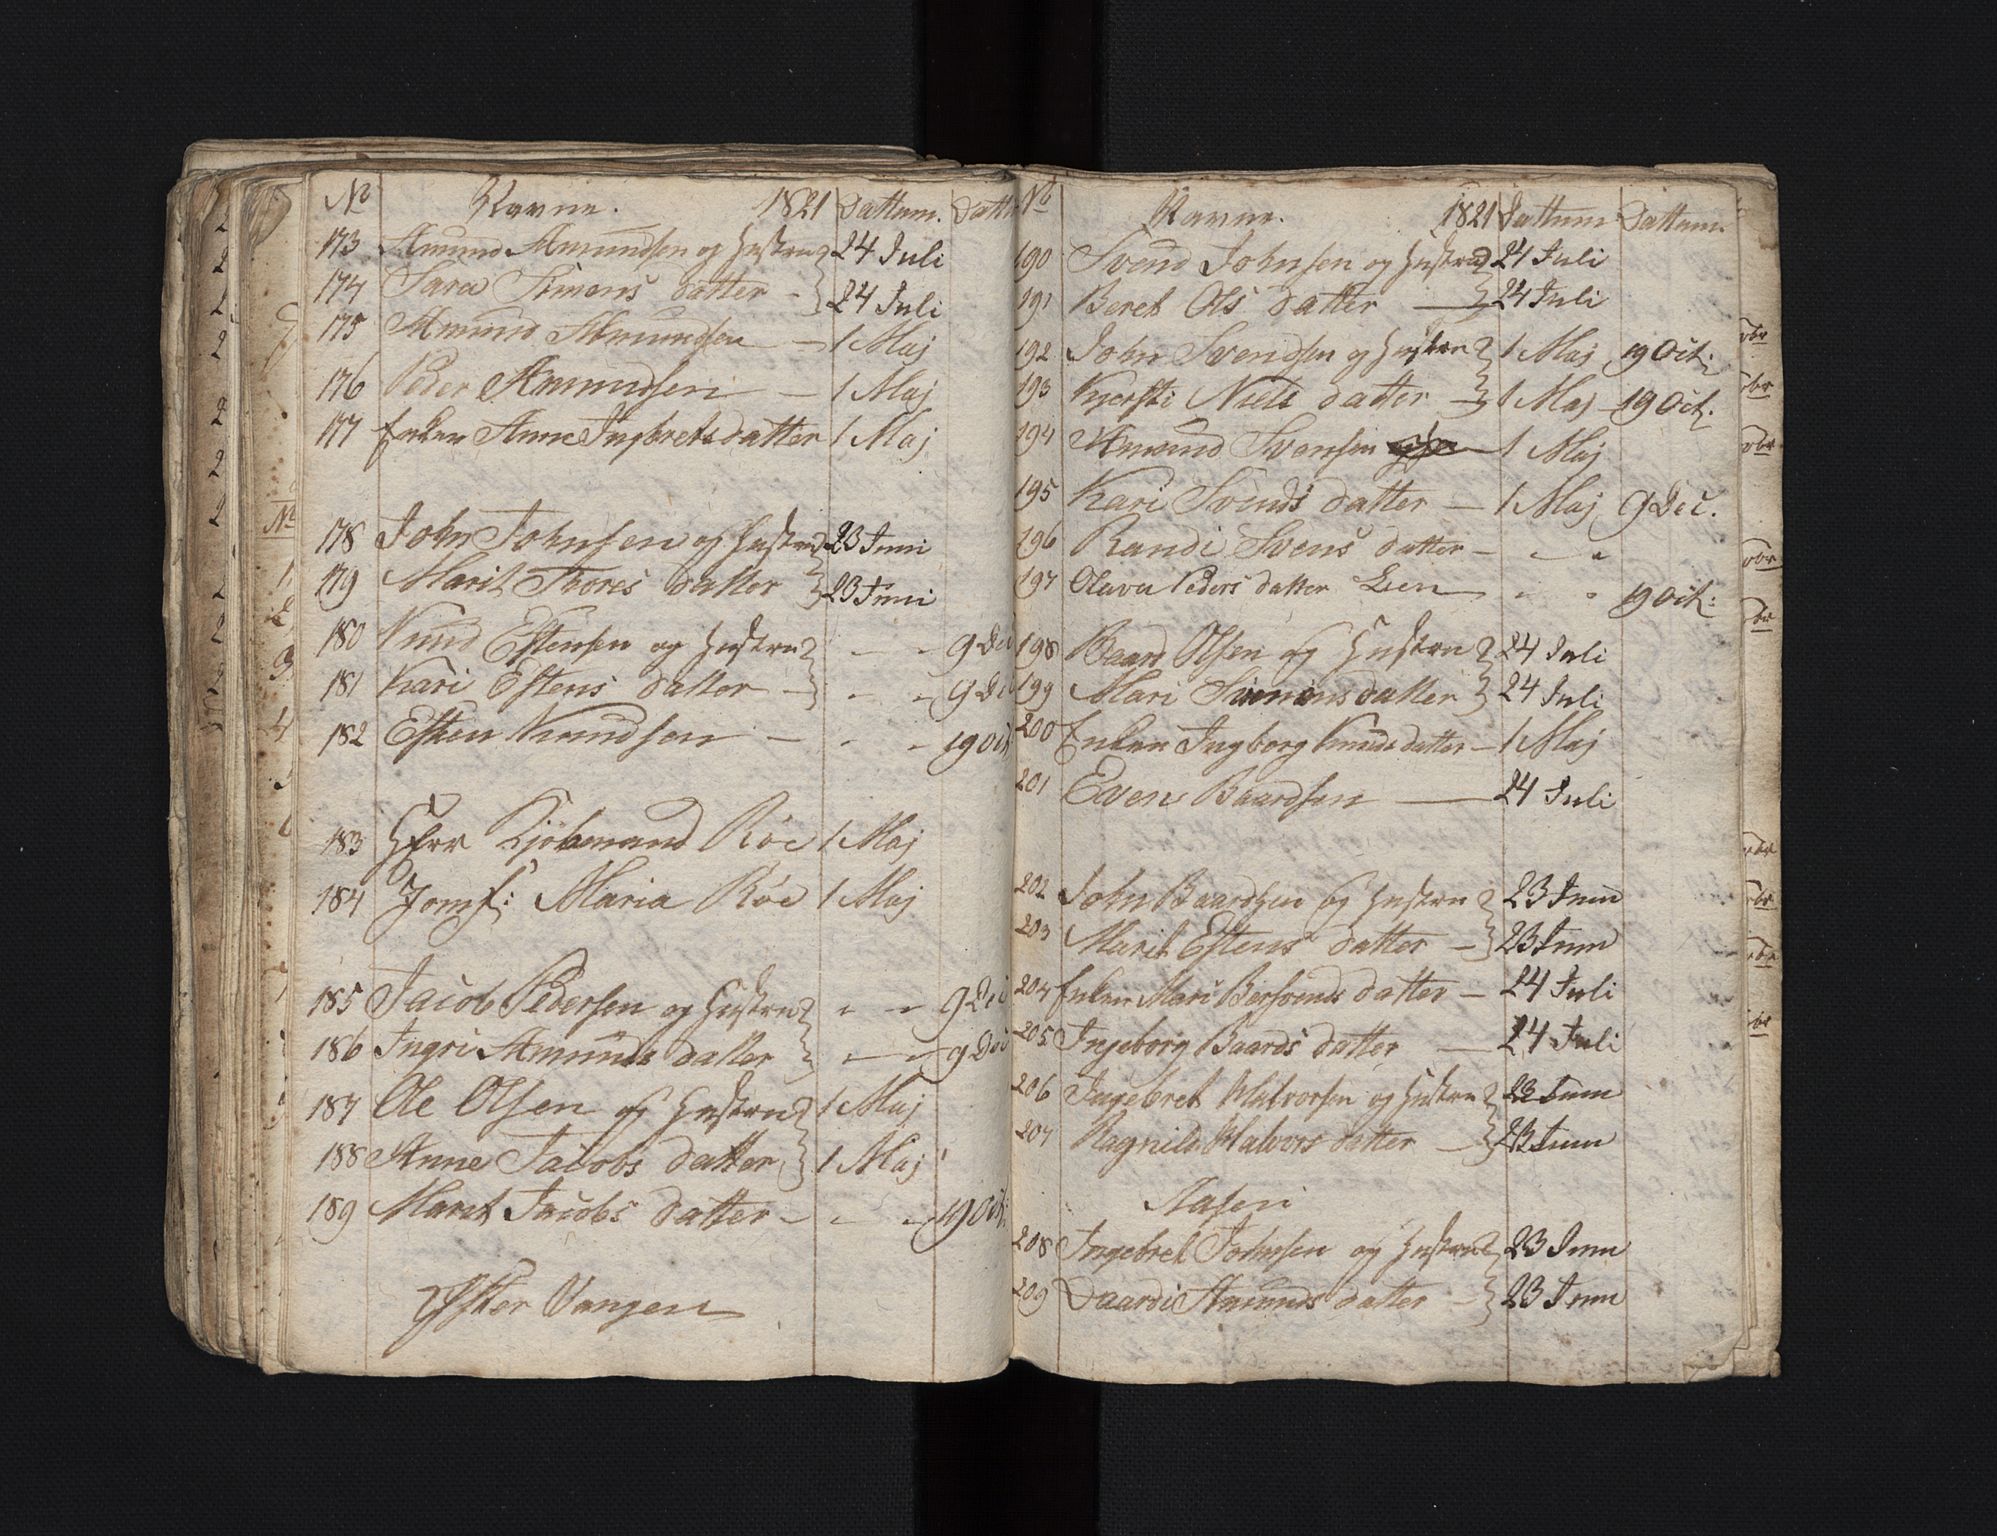 No Navne. 1821 Dattum. Dattu
173 Amund Amundsen og Hustru 24 Juli
174 Sara Simons datter - 24 Juli
175 Amund Amundsen - 1 Maj
176 Peder Amundsen - 1 Maj
177 Enken Anne Ingbrets datter 1 Maj
178 John Johnsen og Hustru 23 Juni
179 Marit Thores datter 23 Juni
180 Knud Estensen og Hustru - - 9 Dec
181 Kari Estens datter - - - 9 Dec
182 Esten Knudsen - - - 19 Oct
183 Herr Kjöbmand Röe 1 Maj
184 Jomf: Maria Röe 1 Maj
185 Jacob Pedersen og Hustru - - 9 Dec
186 Ingri Amunds datter - - 9 Dec
187 Ole Olsen og Hustru 1 Maj
188 Anne Jacobs datter 1 Maj
189 Maret Jacobs datter - - - 19 Oct:
Øster Vangen
No Navne. 1821 Dattum Dattum.
190 Svend Johnsen og Hustru 24 Juli
191 Beret Ols datter - 24 Juli
192 John Svendsen og Hustru 1 Maj 19 Oct:
193 Kjersti Niels datter - 1 Maj - 19 Oct.
194 Amund Svensen - 1 Maj
195 Kari Svends datter - 1 Maj 9 Dec.
196 Randi Svens datter - - "
197 Olava Peders datter Lien " " 19 Oct:
198 Baard Olsen og Hustru 24 Juli
199 Mari Simons datter 24 Juli
200 Enken Ingborg Knuds datter - 1 Maj
201 Even Baardsen - 24 Juli
202 John Baardsen og Hustru 23 Juni
203 Marit Estens datter - 23 Juni
204 Enken Mari Bersvends datter - 24 Juli
205 Ingeborg Baards datter - 24 Juli
206 Ingebret Halvorsen og Hustru 23 Juni
207 Ragnild Halvors datter - 23 Juni
Aasen
208 Ingebret Johnsen og Hustru 23 Juni
209 Daardi Amunds datter - 23 Juni